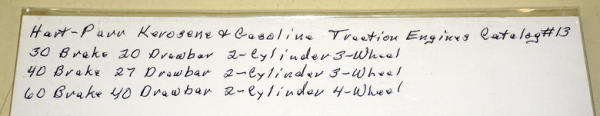 Hart-Parr Kerosene & Gasoline Traction Engines Catalog #13
30 Brake 20 Drawbar 2-Cylinder 3-Wheel
40 Brake 27 Drawbar 2-Cylinder 3-Wheel
60 Brake 40 Drawbar 2-Cylinder 4-Wheel